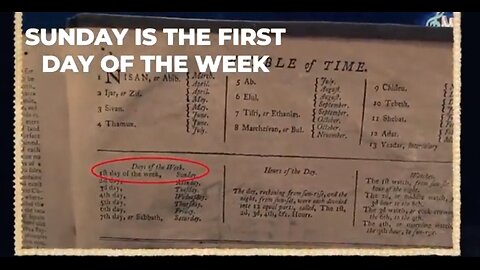 SUNDAY IS THE FIRST
DAY OF THE WEEK
BLE of TIME.
1 NISAN, or Abib.
March.
April.
2 Ijar, or Zif.
April.
May.
3 Sivan.
May.
June.
4 Thamuz.
June.
July.
5 Ab.
July.
August.
6 Elul.
August.
September.
7 Tiſri, or Ethanim.
September.
October.
8 Marcheſvan, or Bul.
October.
November.
9 Chiſleu.
10 Tebeth.
11 Shebat.
12 Adar.
13 Veadar,
Days of the Week.
1ſt day of the week, Sunday.
day, Monday.
3d day, Tueſday.
4th day, Wedneſday.
5th day, Thurſday.
6th day, Friday.
7th day, or Sabbath, Saturday.
Hours of the Day.
The day, reckoning from ſun-riſe, and the
night, from ſun-ſet, were each divided
into 12 equal parts, called, The 1ſt,
2d, 3d, 4th, &c. Hours.
Watches.
The 1ſt watch, from ſun-ſet to the